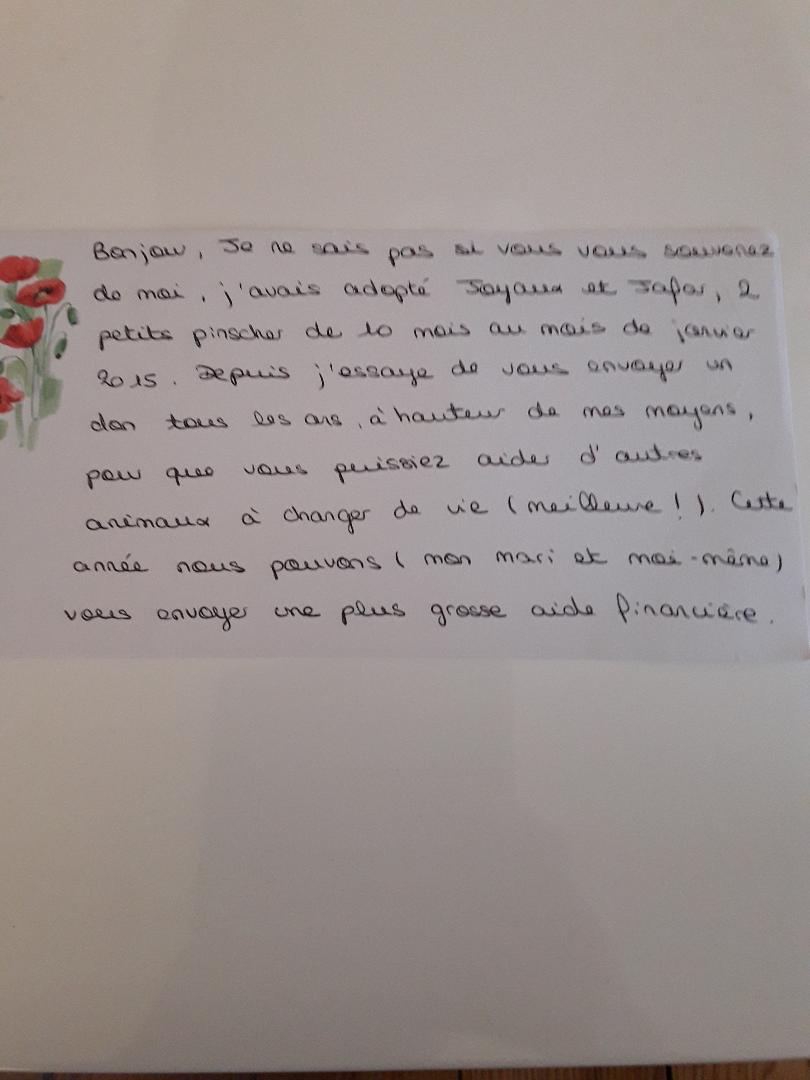 Bonjour, Je ne sais pas si vous vous souvenez
de moi, j'avais adopté Joyaux et Jafar, 2
petits pinscher de 10 mois au mois de janvier
2015. Depuis j'essaye de vous envoyer un
don tous les ans, à hauteur de mes moyens,
pour que vous puissiez aider d'autres
animaux à changer de vie (meilleure !). Cette
année nous pouvons (mon mari et moi-même)
vous envoyer une plus grosse aide financière.